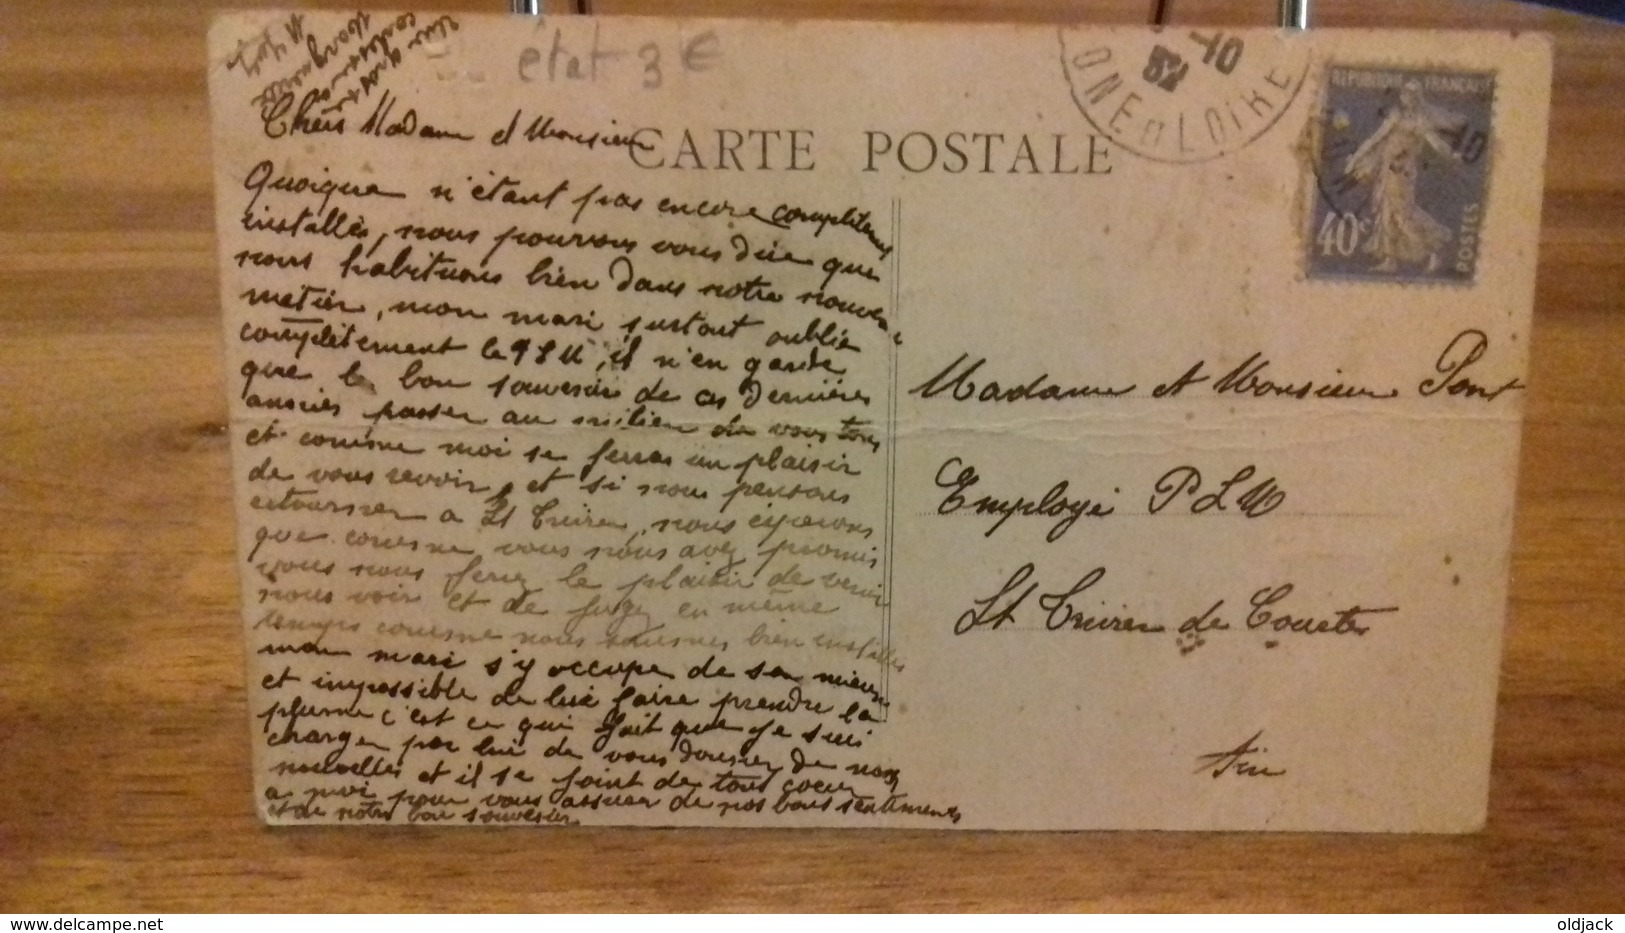 état 3 €
CARTE POSTALE
ONE et LOIRE
RÉPUBLIQUE FRANÇAISE
40c
POSTES
Chers Madame et Monsieur
Quoique n'étant pas encore complètement
installés, nous pouvons vous dire que
nous habituons bien dans notre nouveau
métier, mon mari surtout oublie
complètement le PLM, il n'en garde
que le bon souvenir de ces dernières
années passer au milieu de vous tous
et comme moi se feras un plaisir
de vous revoir, et si nous pensons
retourner a St Trivier, nous espérons
que comme vous nous avez promis
vous nous ferez le plaisir de venir
nous voir et de jugez en même
temps comme nous sommes bien installés
mon mari s'y occupe de son mieux
et impossible de lui faire prendre la
plume c'est ce qui fait que je suis
charger par lui de vous donner de nos
nouvelles et il se joint de tous coeur
a moi pour vous assurer de nos bons sentiments
et de notre bon souvenir
Madame et Monsieur Pont
Employé PLM
St Trivier de Courtes
Ain
oldjack